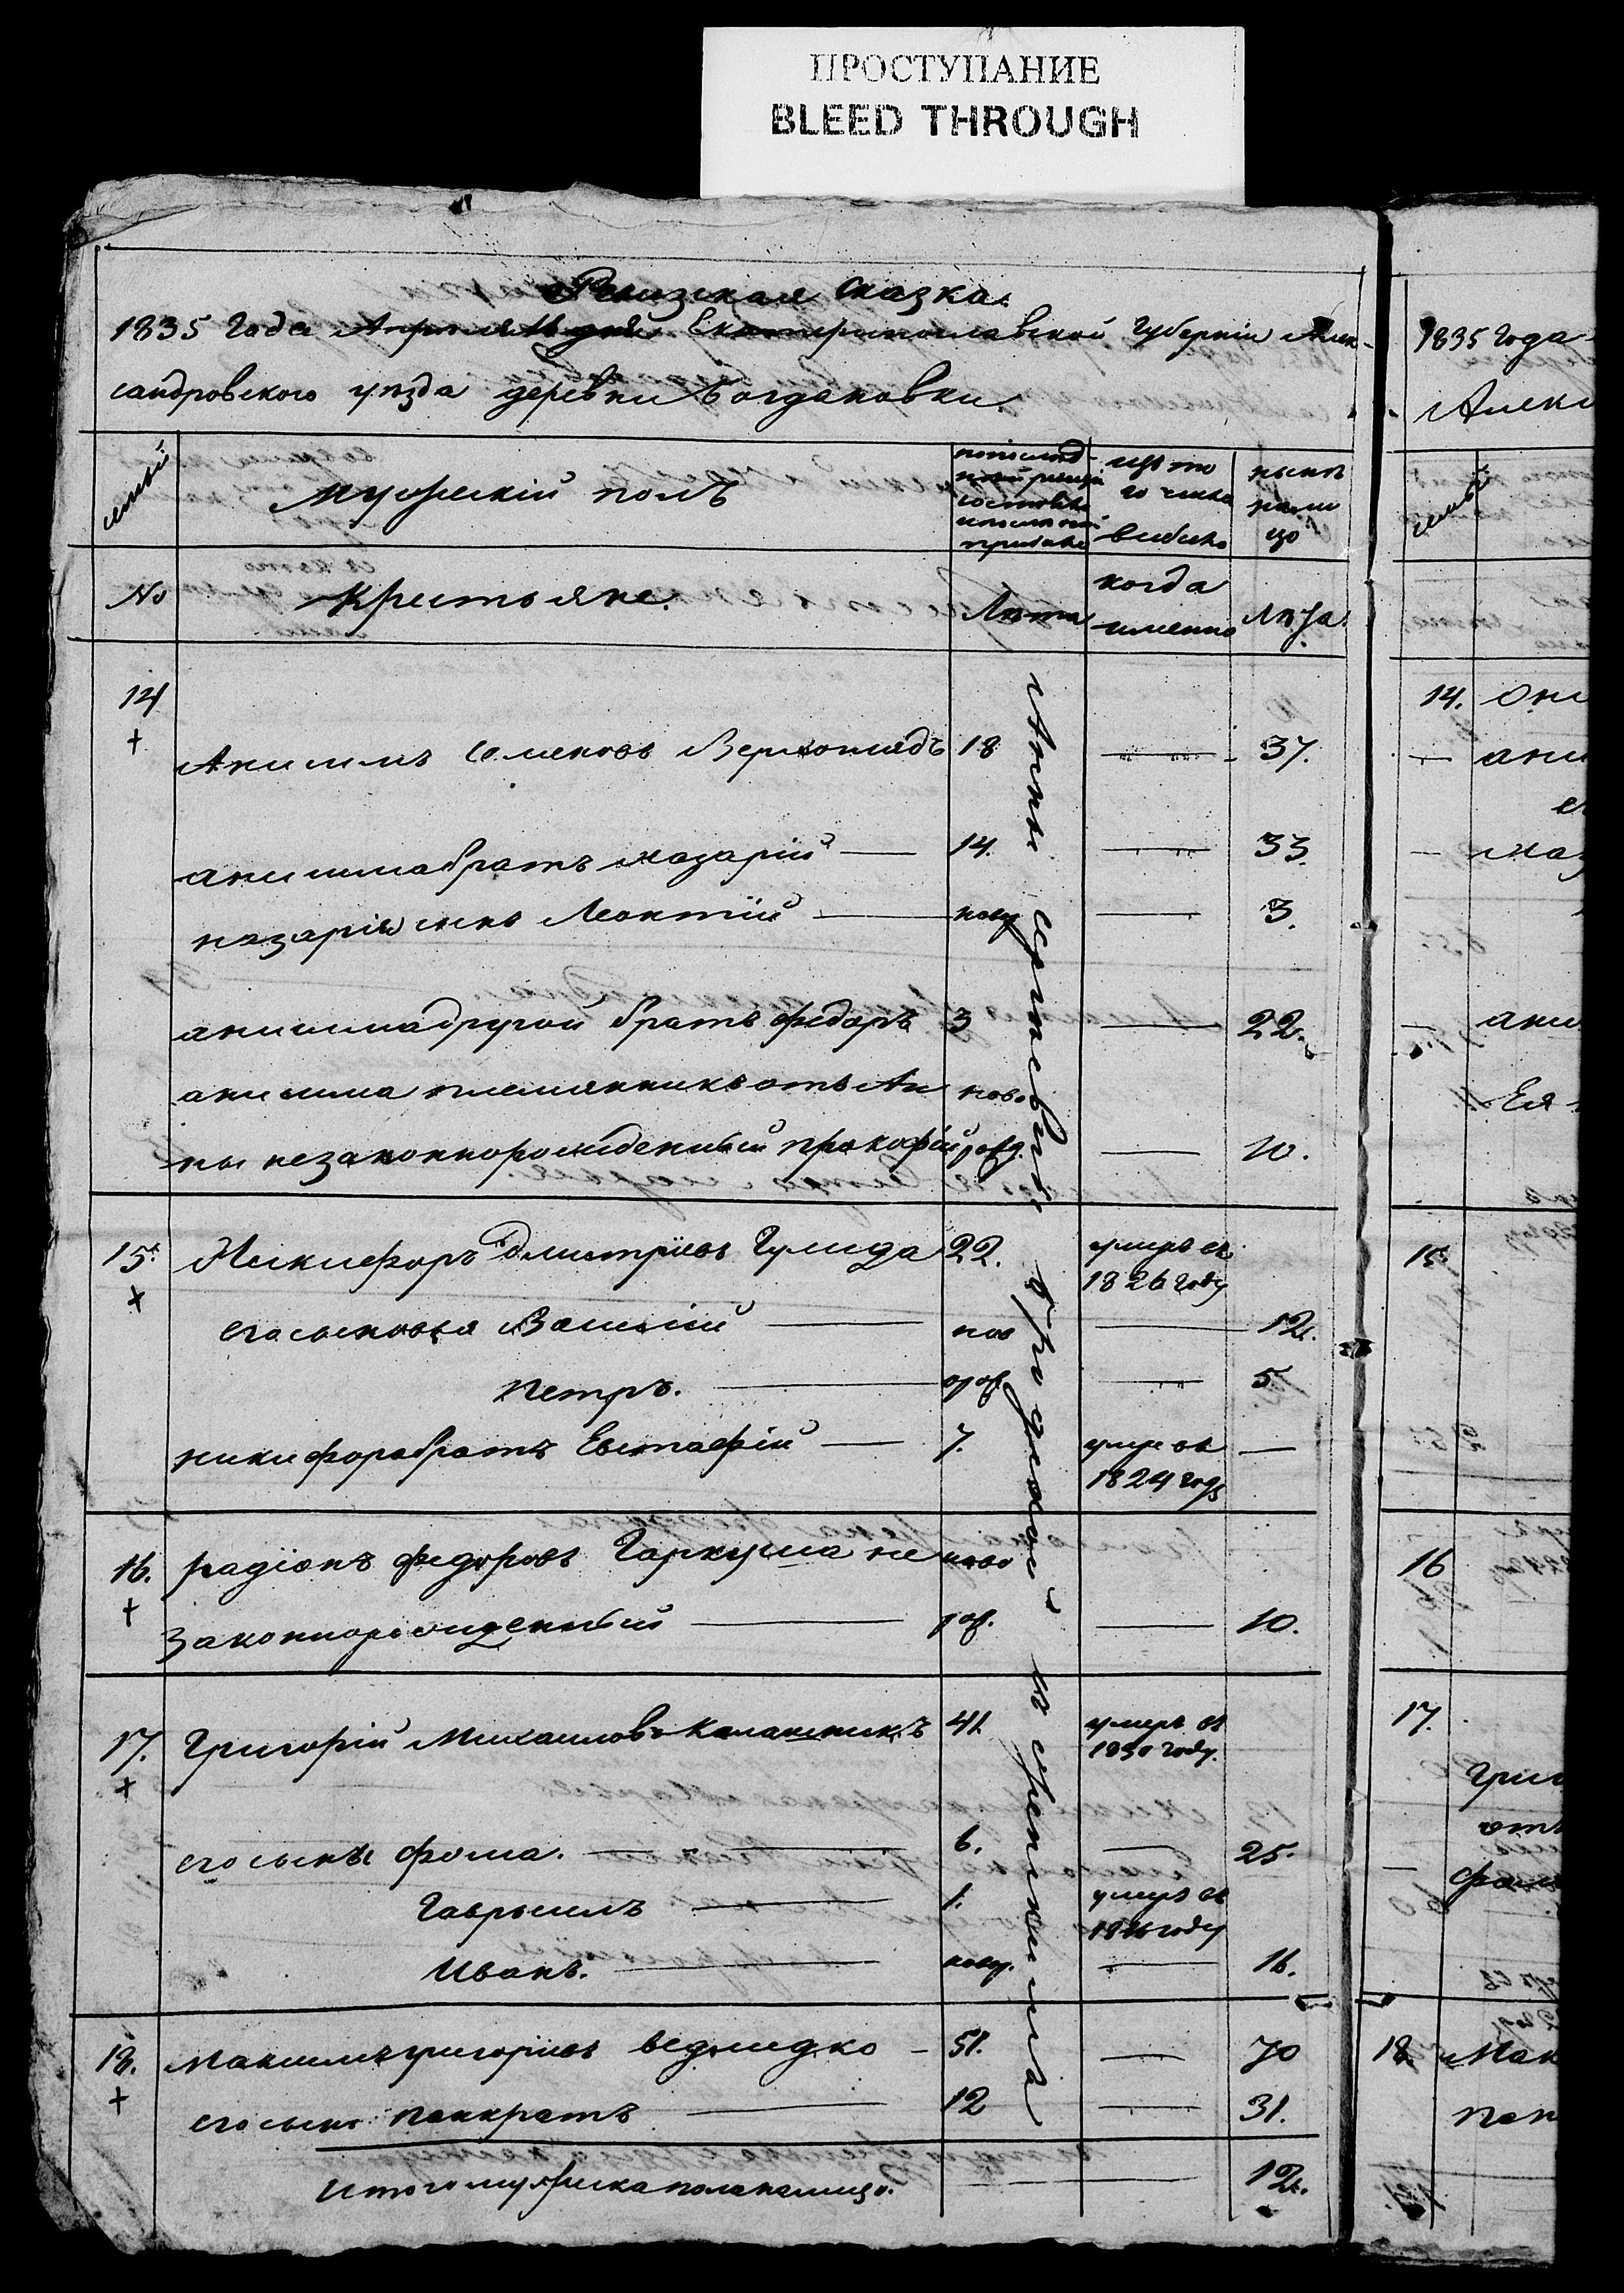 ПРОСТУПАНИЕ
BLEED THROUGH
Ревизская сказка.
1835 Года Апреля 16 дня Екатеринославской Губернiи Алек-
сандровского уѣзда деревни Богдановки
семьи
мужескiй полъ
по последней ревизiи состояло и после оной прибыло
изъ того числа выбыло
нынѣ на лицо
№ Крестьяне. Лѣта когда именно Лѣта.
14
+
Анисимъ Семеновъ 18 37.
анисима братъ назарiй 14. 33.
назарiя сынъ Леонтiй новор 3.
анисима другой братъ федоръ 3 22.
анисима племянникъ отъ Ан ново
ны незаконнорожденный прокофiй рожд. 10.
15.
+
Никифоръ Дмитрiевъ Гулида 22. умеръ въ 1826 году
его сыновья Василiй нов 12.
петръ. орож 5.
никифора братъ Евстафiй 7. умре въ 1824 году
16.
+
радiонъ федоровъ Гаркуша не ново
законнорожденный рож. 10.
17.
+
Григорiй Михаиловъ Калашникъ 41 умеръ въ 1830 году.
его сынъ фома. 6. 25.
Гаврыилъ 1. умеръ въ 1826 году
Иванъ. новор. 16.
18.
+
Максимъ григорiевъ ведмидко 51. 70
его сынъ панкратъ 12 31.
итого мужеска пола налицо. 12.
1835 года
Алекс
семьи
14.
ани
наз
ани
Ея
15
16
17.
Григ
отъ
фом
18. Мак
пан